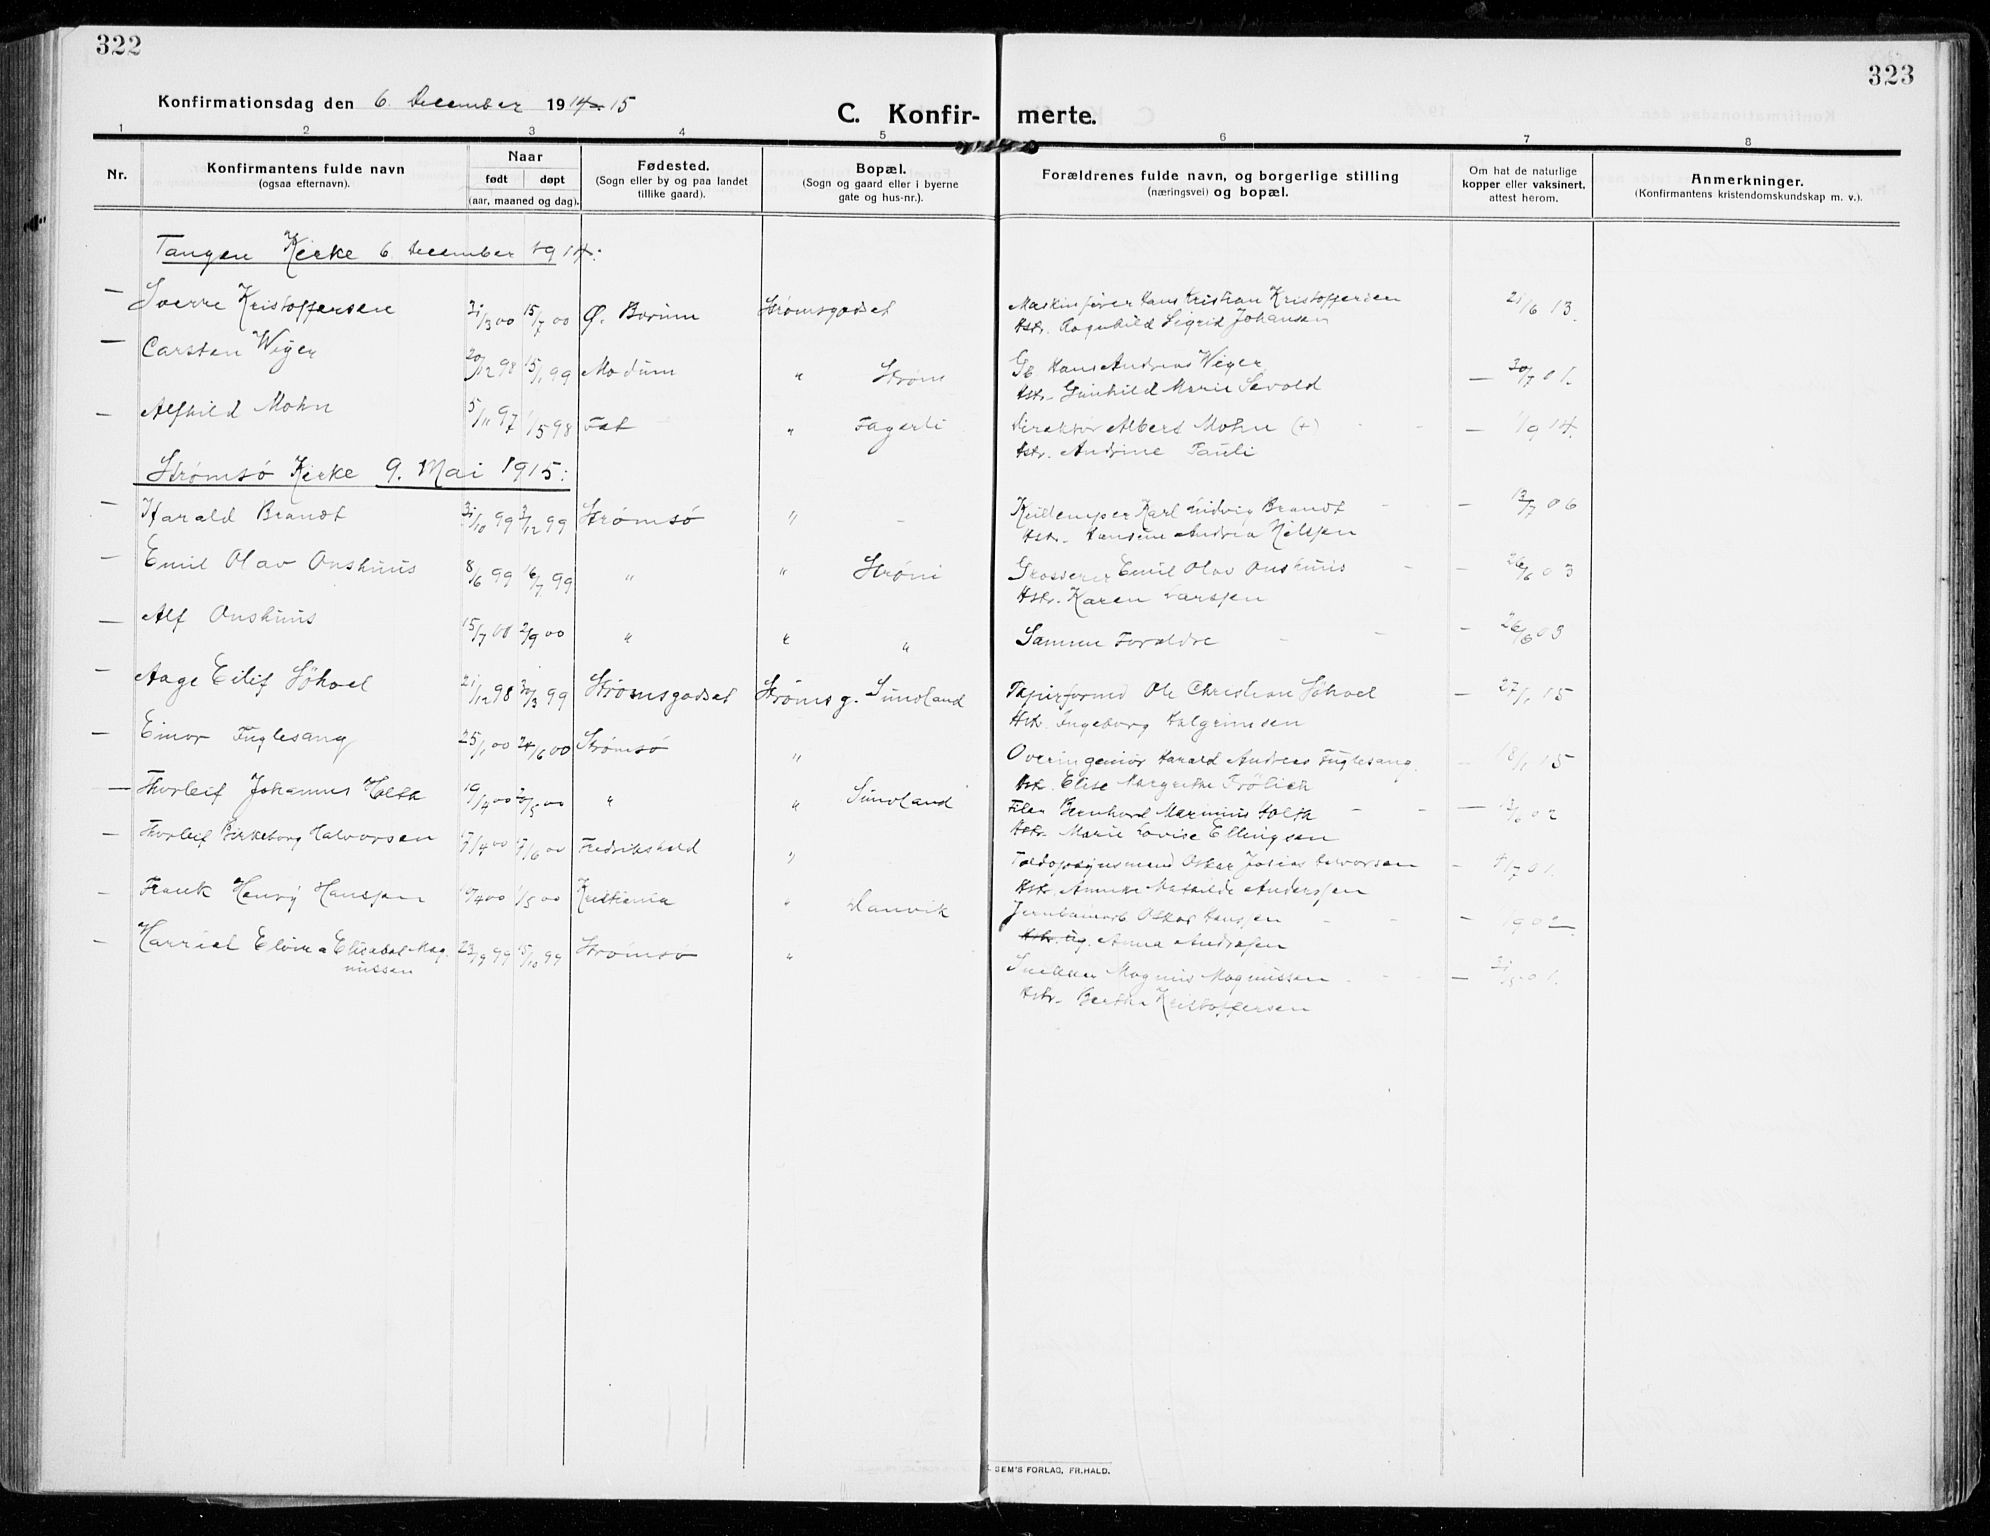 322
323
Konfirmationsdag den 6. December 1914-15
C. Konfirmerte.
1 2 3 4 5 6 7 8
Nr.
Konfirmantens fulde navn
(ogsaa efternavn).
Naar
født døpt
(aar, maaned og dag).
Fødested.
(Sogn eller by og paa landet
tillike gaard).
Bopæl.
(Sogn og gaard eller i byerne
gate og hus-nr.).
Forældrenes fulde navn, og borgerlige stilling
(næringsvei) og bopæl.
Om hat de naturlige
kopper eller vaksinert,
attest herom.
Anmerkninger.
(Konfirmantens kristendomskundskap m. v.).
Tangen Kirke 6 December 1914:
— Sverre Kristoffersen 31/3 00 15/7 00 Ø. Bærum Strømsgodset Maskinfører Hans Kristian Kristoffersen 21/6 13.
Hstr. Ragnhild Sigrid Johansen
— Carsten Wiger 20/12 98 15/1 99 Modum " Strøm Gb. Hans Andreas Wiger — 30/7 01.
Hstr. Gunhild Marie
— Alfhild Mohn 5/11 97 1/5 98 " Fagerli Direktør Albert Mohn (+) — 1/9 14.
Hstr. Andrine Pauli
Strømsø Kirke 9. Mai 1915:
— Harald Brandt 31/10 99 3/12 99 Strømsø " - Karl Ludvig Brandt - 13/7 06
Hstr. Hansine Andrea Nilssen
— Emil Olav Onshuus 8/6 99 16/7 99 " " Strøm Grosserer Emil Olav Onshuus - 26/6 03
Hstr. Karen Larssen
— Alf Onshuus 15/7 00 2/9 00 " " " Samme Forældre - 26/6 03
— Aage Eilif Søhoel 21/12 98 30/3 99 Strømsgodset Strømsg. Sundland Papirformd Ole Christian Søhoel — 27/1 15
Hstr. Ingeborg Halgrimsen
— Einar Fuglesang 25/1 00 24/6 00 Strømsø " Overingeniør Harald Andreas Fuglesang. - 18/1 15
Hstr. Elise Margrethe Frölich
— Thorleif Johannes Holth 19/4 00 20/5 00 " " Sundland Bernhard Marinius Holth — 13/6 02
Hstr. Marie Lovise Ellingsen
— Thorleif Birkeborg Halvorsen 7/4 00 7/6 00 Fredrikshald " Toldopsynsmand Oskar Josias Halvorsen - 4/7 01.
Hstr. Annike Mathilde Anderssen
— Frank Henry Hanssen 10/4 00 1/5 00 Kristiania " Danvik Jernbanearb Oskar Hanssen - 1902.
Hstr. ug. Anna Andrasen
— Harriet Elvine Elisabet Mag-
nussen 23/9 99 15/10 99 Strømsø " Snekker Magnus Magnussen — 21/5 01.
Hstr. Berthe Kristoffersen
SEM'S FORLAG, FR.HALD.